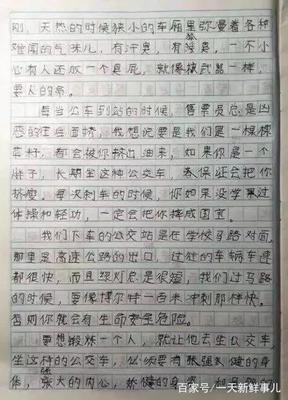 刚，天热的时候狭小的车厢里弥漫着各种
难闻的气味儿，有汗臭，有
一不小
心有人还放一个臭屁，就像核武器一样，
要人的命。
每当公车到站的时候，售票员总是凶
恶的往后面挤，我想说要是我们是一棵棵
菜籽，都会被你挤出油来，如果你是一个
胖子，长期坐这种公交车，我保证会把你
挤瘦。每次刹车的时候，你如果没学过
体操和轻功，一定会把你摔成国宝。
我们下车的公交站是在学校马路对面，
那里是高速公路的出口，过往的车辆车速
都很快，而且绿灯总是很短，我们过马路
的时候，要像博尔特一百米冲刺那样快。
否则你就会有生命安全危险。
要想锻炼一个人，就让他去坐公交车，
坐这种的公交车，必须要有张强大健的身
体，强大的内心，矫健的身
百家号/一天新鲜事儿